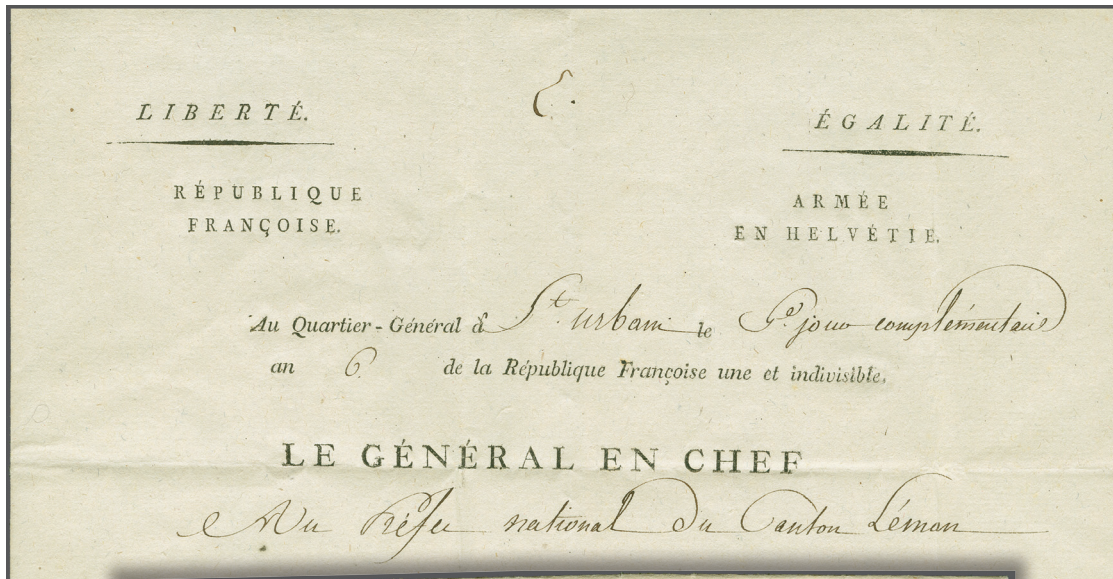 LIBERTÉ.
ÉGALITÉ.
RÉPUBLIQUE
FRANÇOISE.
ARMÉE
EN HELVÉTIE.
Au Quartier-Général à St. urbain le jour complémentaire
an 6. de la République Françoise une et indivisible.
LE GÉNÉRAL EN CHEF
Au Préfet national du Canton Léman